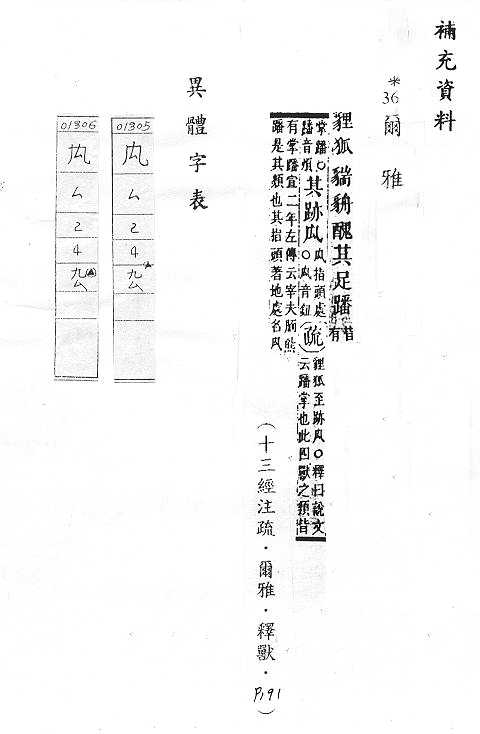 補充資料
*36爾雅
貍狐貒貈醜其足蹯皆有
掌蹯○蹯音煩其跡厹厹指頭處○厹音鈕(疏)貍狐至跡厹○釋曰說文云蹯掌也此四獸之類皆
有掌蹯宣二年左傳云宰夫胹熊
蹯是其類也其指頭著地處名厹
(十三經注疏．爾雅．釋獸．P.191)
異體字表
01305
厹
厶
2
4
厹
01306
厹
厶
2
4